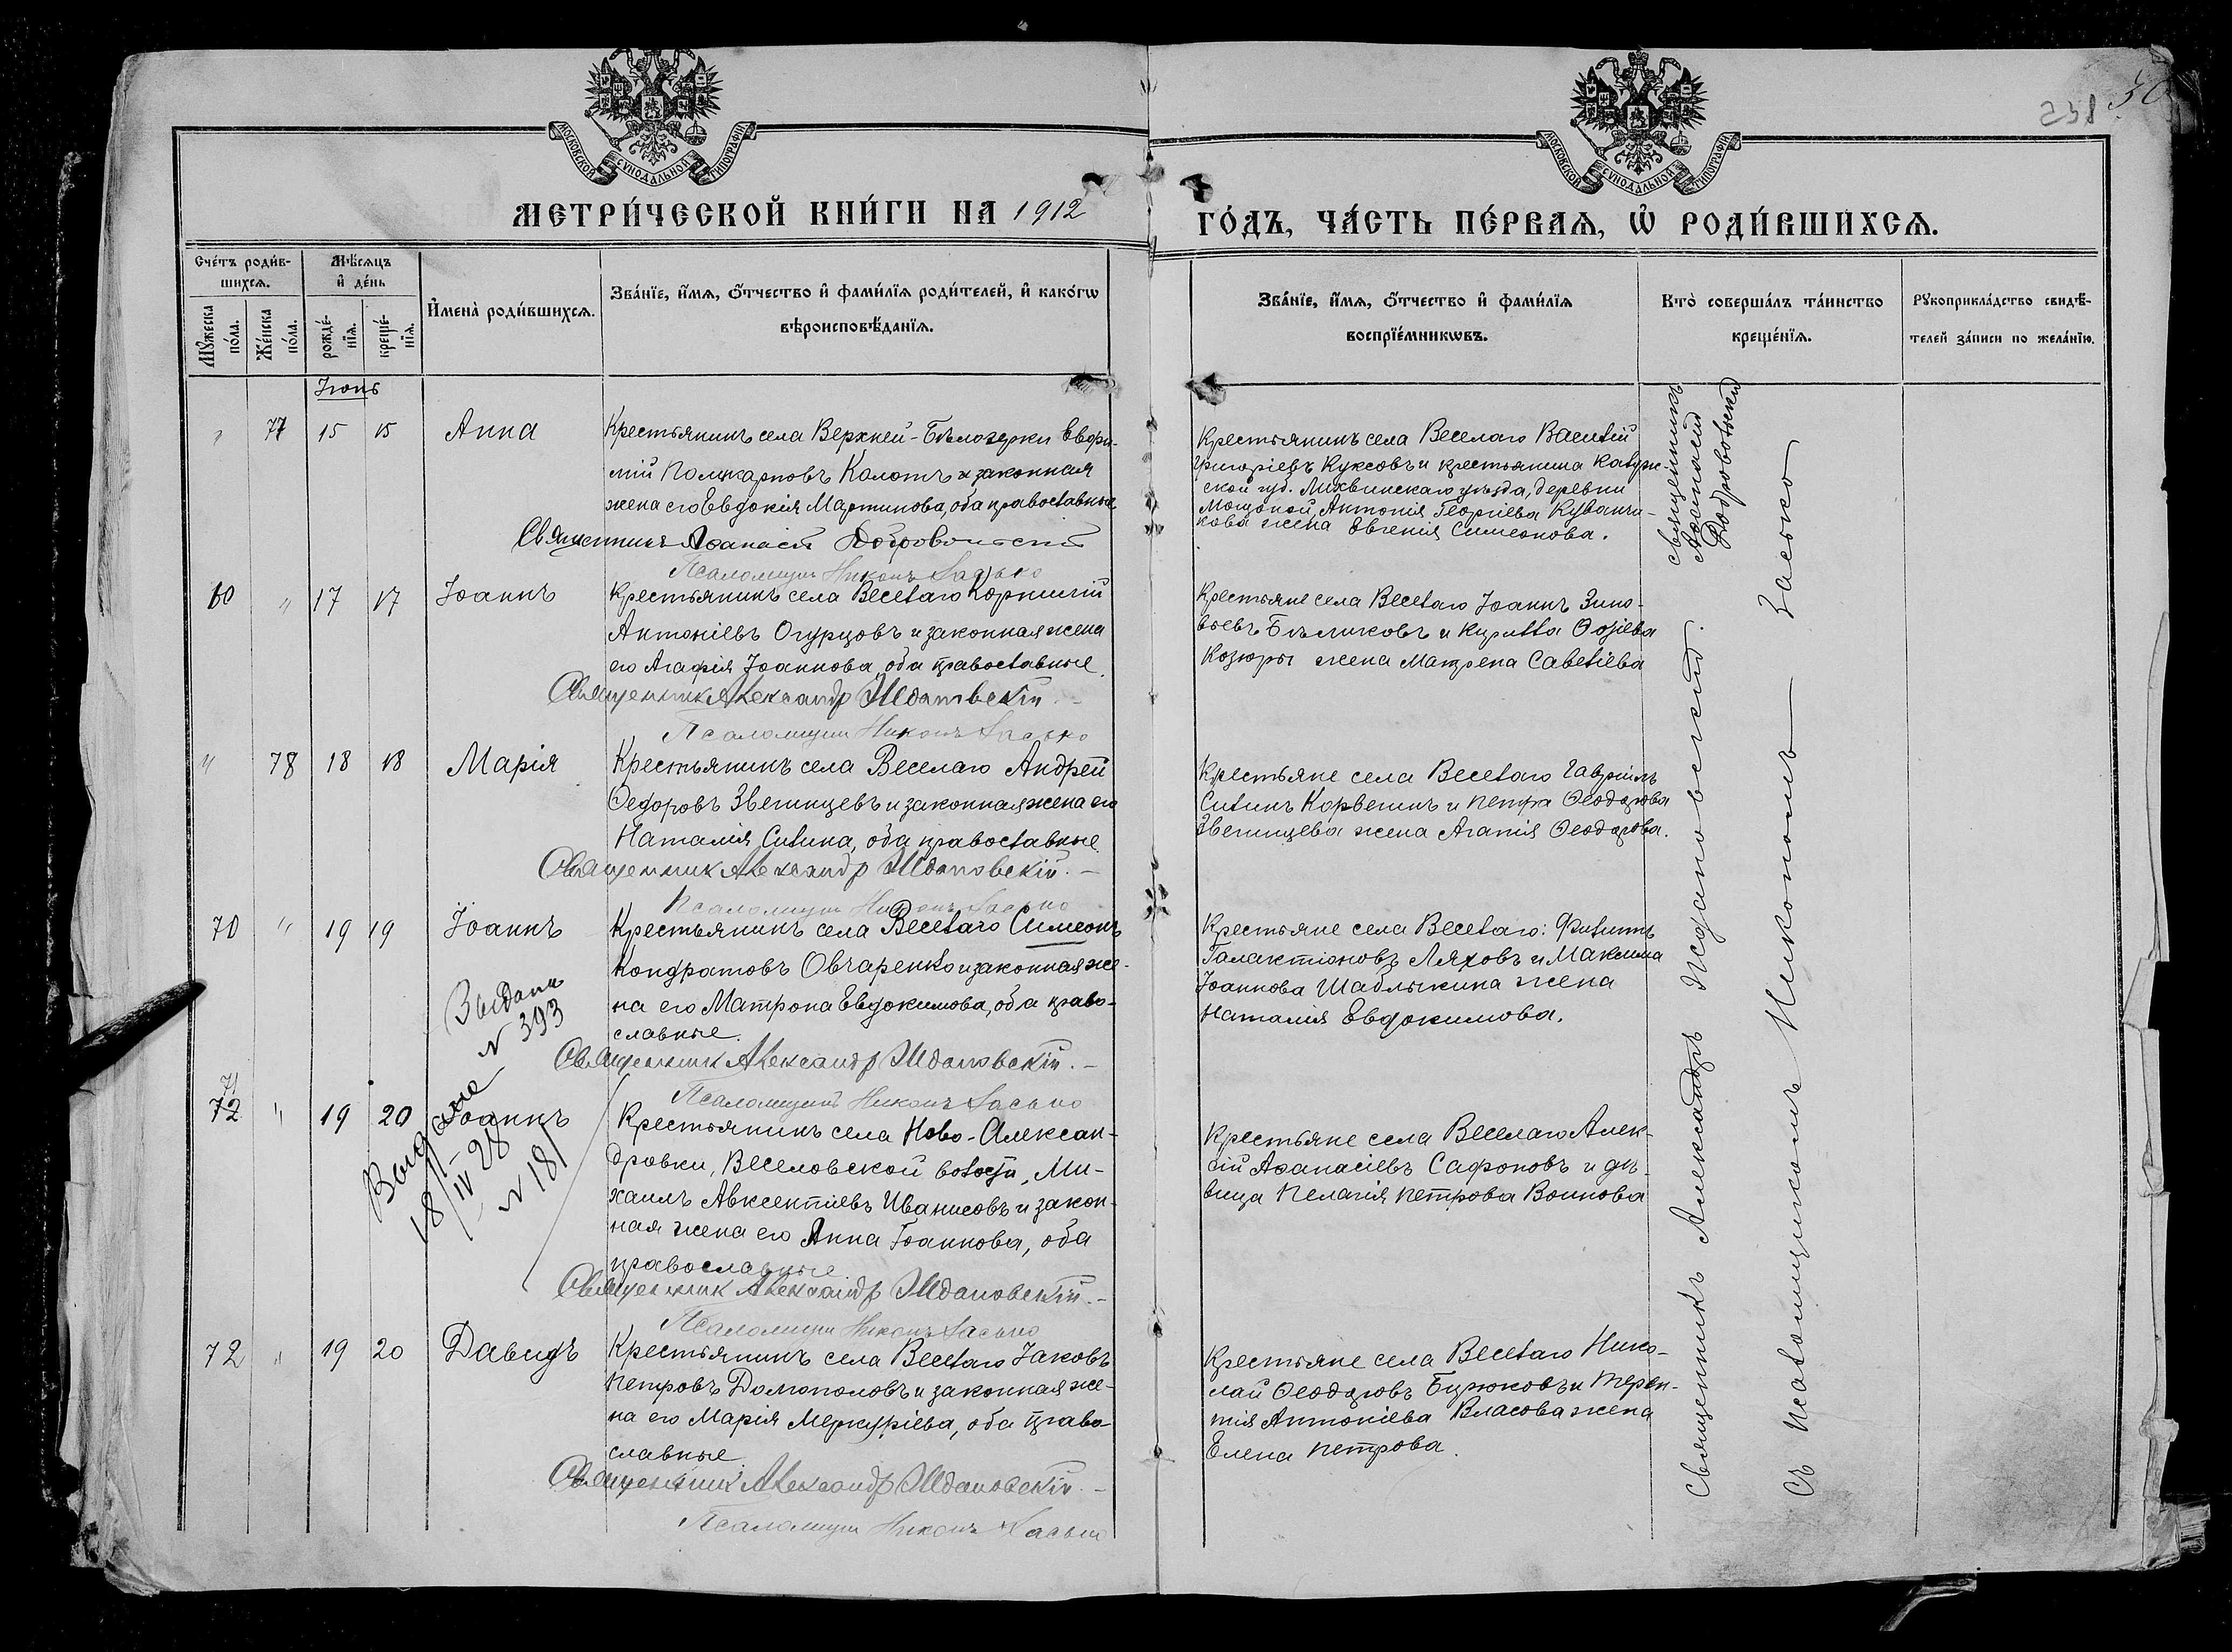 МОСКОВСКОЙ СѴНОДАЛЬНОЙ ТИПОГРАФІИ
МОСКОВСКОЙ СѴНОДАЛЬНОЙ ТИПОГРАФІИ
238
МЕТРИ́ЧЕСКОЙ КНИ́ГИ НА 1912
ГО́ДЪ, ЧА́СТЬ ПЕ́РВАѦ, Ѡ҆ РОДИ́ВШИХСѦ.
Сче́тъ роди́в-
шихсѧ.
Мꙋжеска
по́ла.
Же́нска
по́ла.
Мѣ́сѧцъ
и҆ де́нь
рожде́-
нїѧ.
креще́-
нїѧ.
И҆мена̀ роди́вшихсѧ.
Зва́нїе, и҆́мѧ, ѻ҆́тчество и҆ фами́лїѧ роди́телей, и҆ како́гѡ
вѣроисповѣ́данїѧ.
Зва́нїе, и҆́мѧ, ѻ҆́тчество и҆ фами́лїѧ
воспрїе́мникѡвъ.
Кто̀ соверша́лъ та́инство
креще́нїѧ.
Рꙋкоприкла́дство свидѣ́-
телей за́писи по жела́нїю.
Іюнь
" 77 15 15 Анна
Крестьянинъ села Верхней-Бѣлозерки Евѳи-
мій Поликарповъ Колотъ и законная
жена его Евдокія Мартинова, оба православные
Священникъ Аѳанасій Добровольскій
Псаломщик Никонъ Засько
Крестьянинъ села Веселаго Василій
Григоріевъ Куксовъ и крестьянина Калуж-
ской губ. Лихвинскаго уѣзда, деревни
Антонія Георгіева
жена Евгенія Симеонова.
священникъ
Аѳанасій
Добровольскій
17 17 Іоаннъ
Крестьянинъ села Веселаго Корнилій
Антоніевъ Огурцовъ и законная жена
его Агафія Іоаннова, оба православные.
Священник Александр Ждановскій
Псаломщик Никонъ Засько
Крестьяне села Веселаго Іоаннъ Зино-
вьевъ Бѣликовъ и Кирилла
Козюры жена Матрена Савеліева
" 78 18 18 Марія
Крестьянинъ села Веселаго Андрей
Ѳедоровъ Звегинцевъ и законная жена его
Наталія Силина, оба православные
Священник Александр Ждановскій.
Псаломщик Никонъ Засько
Крестьяне села Веселаго Гавріилъ
Силинъ Корвегинъ и Петра Ѳеодорова
Звегинцева жена Агапія Ѳеодорова.
70 " 19 19 Іоаннъ
Крестьянинъ села Веселаго Симеонъ
Кондратовъ Овчаренко и законная же-
на его Матрона Евдокимова, оба право-
славные.
Священник Александр Ждановскій.
Псаломщикъ Никонъ Засько
Крестьяне села Веселаго: Филиппъ
Галактіоновъ Ляховъ и Максима
Іоаннова Шаблыкина жена
Наталія Евдокимова.
Выдана
№ 393
71
72 " 19 20 Іоаннъ
Крестьянинъ села Ново-Алексан-
дровки, Веселовской волости, Ми-
хаилъ Авксентіевъ Иванисовъ и закон-
ная жена его Анна Іоаннова, оба
православные
Священник Александр Ждановскій.
Псаломщик Никонъ Засько
Крестьяне села Веселаго Алек-
сій Аѳанасіевъ Сафоновъ и дѣ-
вица Пелагія Петрова Воинова
№ 181
72 " 19 20 Давидъ
Крестьянинъ села Веселаго Іаковъ
Петровъ Домополовъ и законная же-
на его Марія Меркуріева, оба право-
славные.
Священник Александр Ждановскій.
Псаломщик Никонъ Засько
Крестьяне села Веселаго Нико-
лай Ѳеодоровъ Бирюковъ и Терен-
тія Антоніева Власова жена
Елена Петрова.
Священникъ Александръ Ждановскій.
съ Псаломщикомъ Никономъ Засько